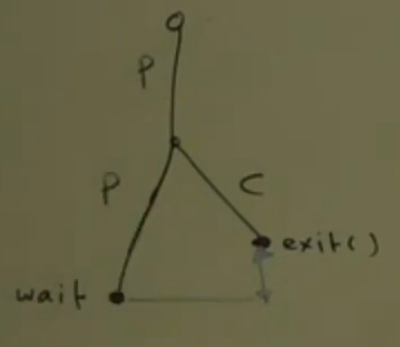 P
P
C
exit()
wait